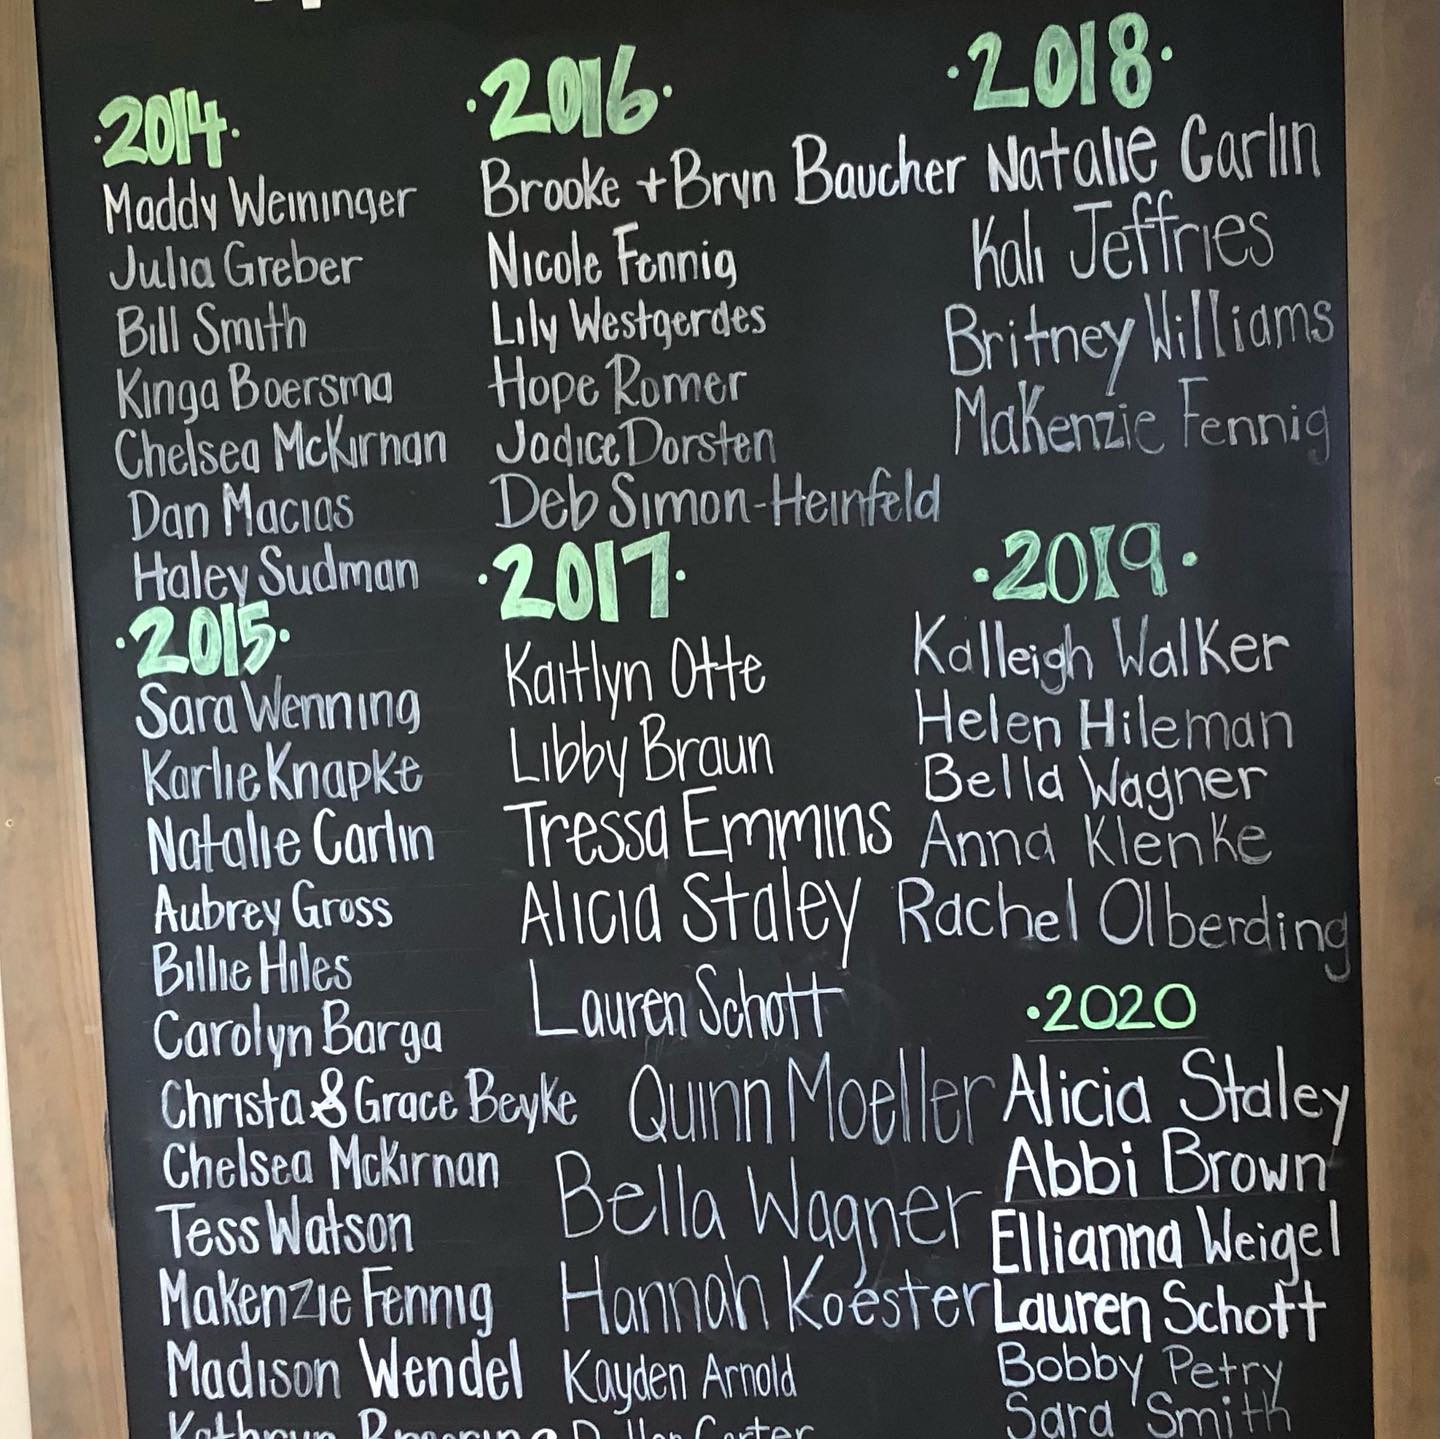 ·2014·
Maddy Weininger
Julia Greber
Bill Smith
Kinga Boersma
Chelsea McKirnan
Dan Macias
Haley Sudman
·2015·
Sara Wenning
Karlie Knapke
Natalie Carlin
Aubrey Gross
Billie Hiles
Carolyn Barga
Christa & Grace Beyke
Chelsea McKirnan
Tess Watson
Makenzie Fennig
Madison Wendel
·2016·
Brooke + Bryn Baucher
Nicole Fennig
Lily Westgerdes
Hope Romer
Jadice Dorsten
Deb Simon-Heinfeld
·2017·
Kaitlyn Otte
Libby Braun
Tressa Emmins
Alicia Staley
Lauren Schott
Quinn Moeller
Bella Wagner
Hannah Koester
Kayden Arnold
Carter
·2018·
Natalie Carlin
Kali Jeffries
Britney Williams
MaKenzie Fennig
·2019·
Kalleigh Walker
Helen Hileman
Bella Wagner
Anna Klenke
Rachel Olberding
·2020
Alicia Staley
Abbi Brown
Ellianna Weigel
Lauren Schott
Bobby Petry
Sara Smith